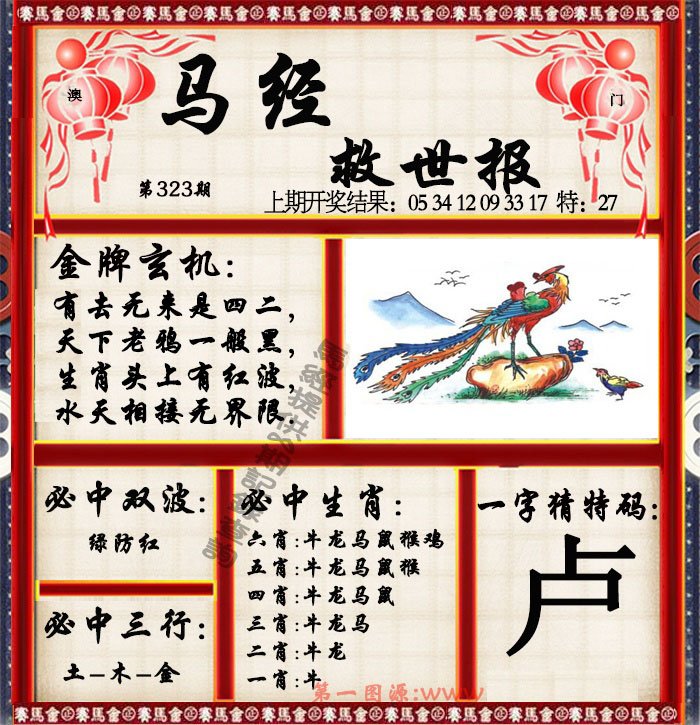 賽馬會 正 賽馬會 正 賽馬會 正 賽馬會
澳
门
马经
救世报
第323期
上期开奖结果：05 34 12 09 33 17 特：27
金牌玄机：
有去无来是四二，
天下老鸦一般黑，
生肖头上有红波，
水天相接无界限.
必中双波：
绿防红
必中三行：
土-木-金
必中生肖：
六肖:牛龙马鼠猴鸡
五肖:牛龙马鼠猴
四肖:牛龙马鼠
三肖:牛龙马
二肖:牛龙
一肖:牛
一字猜特码：
卢
第一图源:www